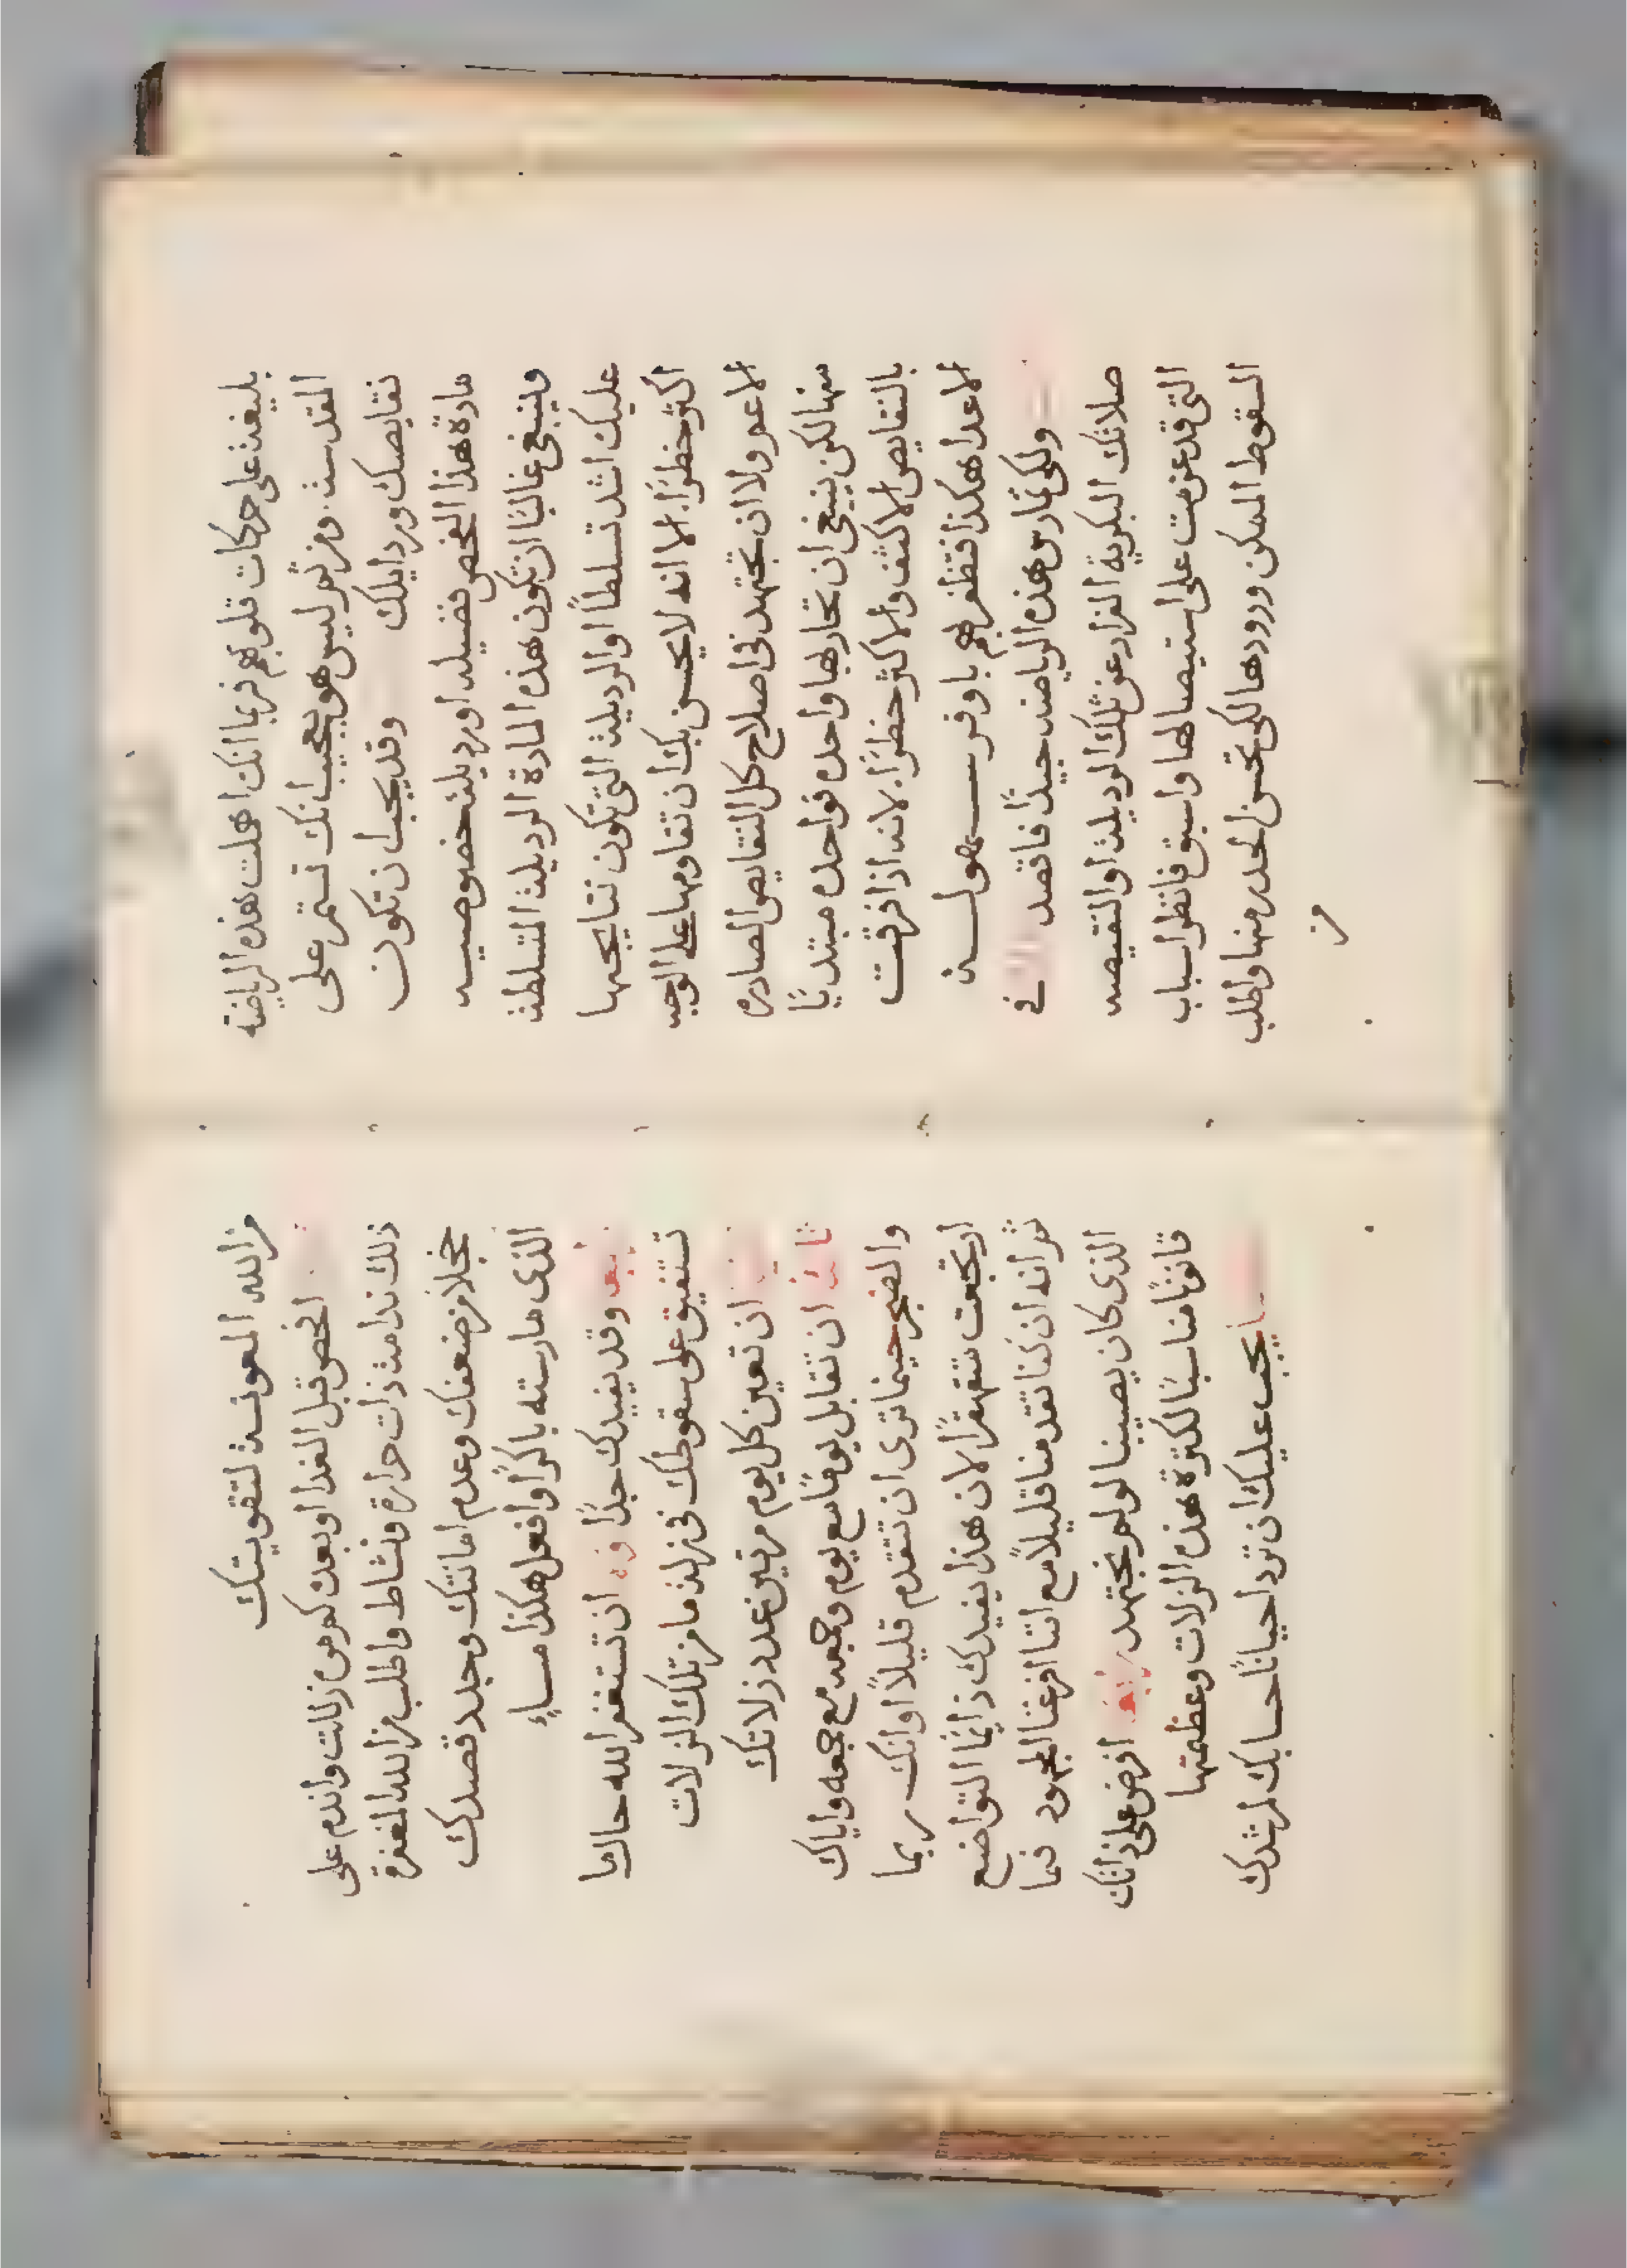 بليغة على حركات قلوبهم فربما انك اهملت هذه الرياضة
المقدسة. ومن ثم ليس هو بعجيب انك تستمر على
نقايصك ورذايلك وقد يجب ان تكون
مادة هذا الفحص فضيله او رذيلة خصوصيه
وينبغي غالبًا ان تكون هذه المادة الرذيلة المتسلطة
عليك اشد تسلطًا او الرذيلة التي تكون نتايجها
اكثر خطرًا. الا انه لا يحسن بك ان تقاومها على الوجه
الاعم ولا ان تجتهد في اصلاح كل النقايص الصادره
منها لكن ينبغي ان تحاربها واحده فواحده مبتديًا
بالنقايص الاكثف والاكثر خطرًا. لانه اذا فرقت
الاعدا هكذا فتظفر بهم باوفر سهولة
ولكي تمارس هذه الرياضه جيدًا فاقصد في
صلاتك البكرية الفرار عن تلك الرذيلة او النقيصه
التي قد عزمت على استيصالها واسبق فانظر اسباب
السقوط الممكن ورودها لكي تحسن الحذر منها واطلب
من
من الله المعونة لتقويتك
افحص قبل الغدا او بعده كم من زللت واندم على
ذلك ندامة ذات حرارة ونشاط واطلب من الله المغفرة
خجلًا من ضعفك وعدم امانتك وجدد قصدك
الذي مارسته باكرًا وافعل هكذا مساءٍ
وقد يفيدك جدًا ان تستغفر الله حالما
تستفيق على سقوطك في زلة ما من تلك الزلات
ان تعين كل يوم مرتين عدد زلاتك
ان تقابل يومًا مع يوم وجمعه مع جمعه واياك
والضجر حينما ترى ان تتقدم قليلًا او انك ربما
ارتجعت متقهقرًا لان هذا يفيدك دايمًا التواضع
ثم انه ان كنا تقدمنا قليلًا مع اننا افرغنا المجهود فما
الذي كان يصيبنا لو لم نجتهد افرض على ذاتك
قانونًا مناسبًا لكثرة هذه الزلات وعظمتها
يجب عليك ان تود احيانًا حسابك لمرشدك